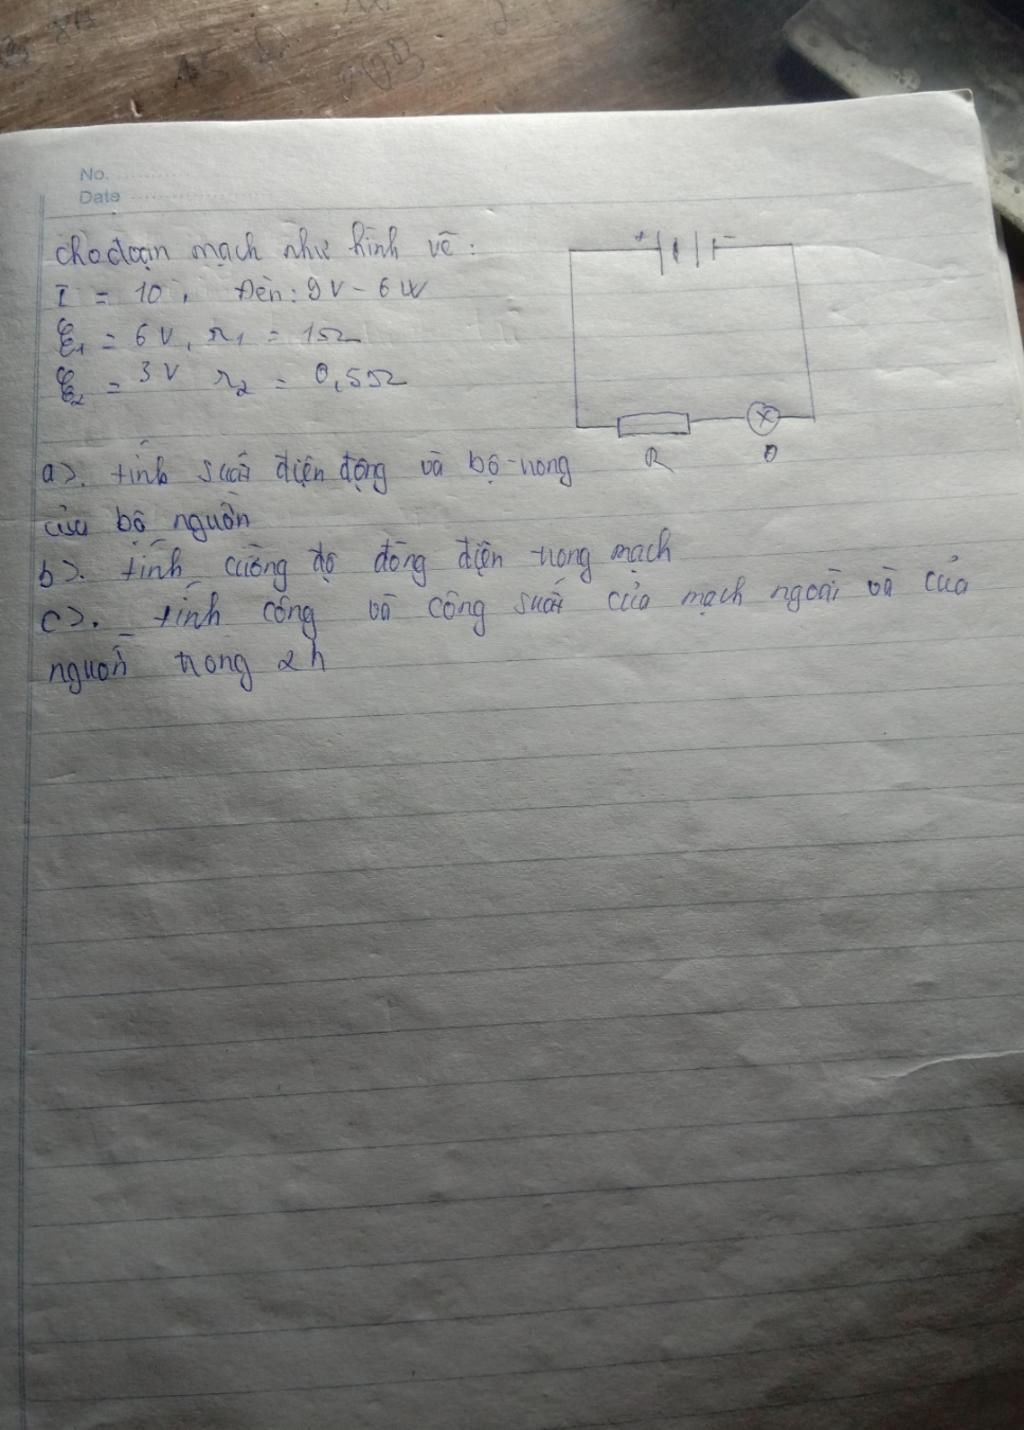 No.
Date
cho đoạn mạch như hình vẽ:
I = 10, Đèn: 9V - 6W
ξ₁ = 6V, r₁ = 1Ω
ξ₂ = 3V r₂ = 0,5Ω
+ -
R Đ
a>. tính suất điện động và bộ trong
của bộ nguồn
b>. tính cường độ dòng điện trong mạch
c>. tính công và công suất của mạch ngoài và của
nguồn trong 2h